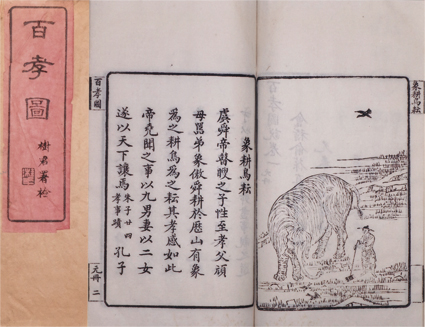 百孝圖
樹君署
象耕鳥耘
象耕鳥耘
虞舜帝瞽瞍之子性至孝父頑
母嚚弟象傲舜耕於歷山有象
為之耕鳥為之耘其孝感如此
帝堯聞之事以九男妻以二女
遂以天下讓焉朱子廿四孝事孔子
百孝圖
元冊 二